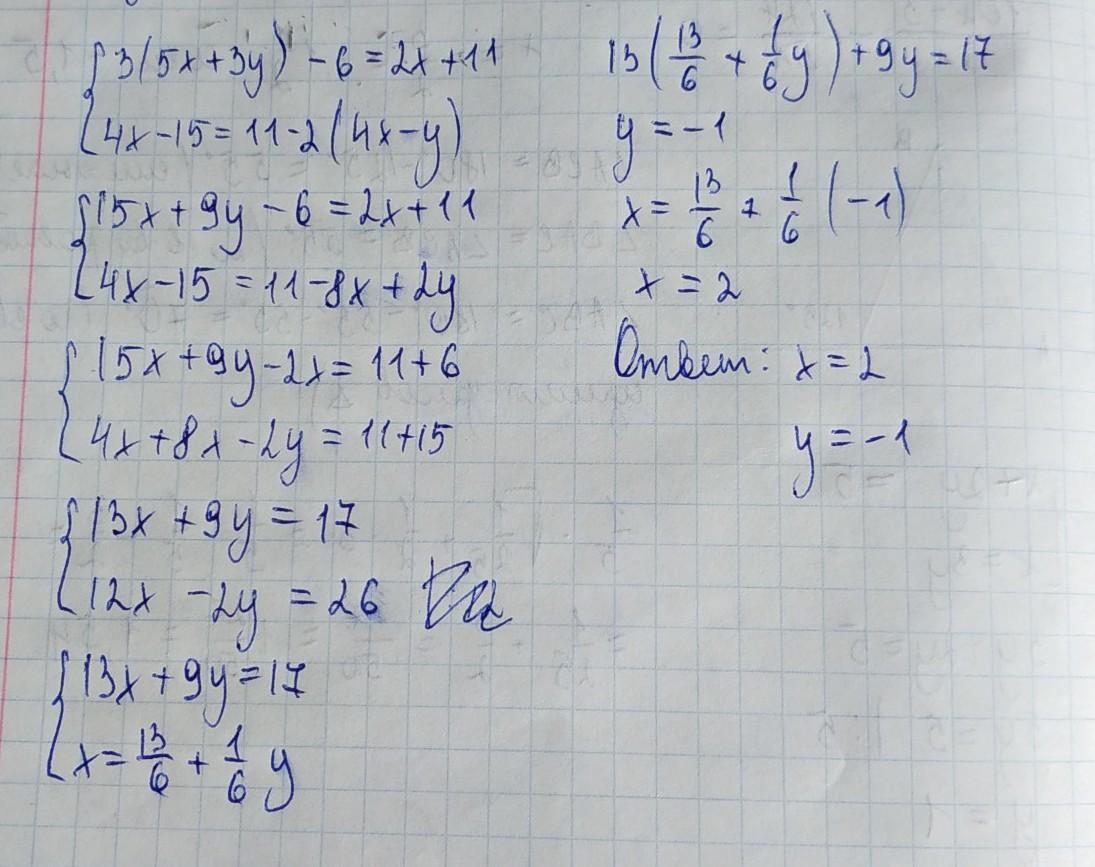 3(5x+3y) - 6 = 2x+11
4x-15 = 11-2(4x-y)
15x+9y-6 = 2x+11
4x-15 = 11-8x+2y
15x+9y-2x = 11+6
4x+8x-2y = 11+15
13x+9y = 17
12x-2y = 26
13x+9y=17
x = 13/6 + 1/6 y
13(13/6 + 1/6 y)+9y=17
y = -1
x = 13/6 + 1/6 (-1)
x = 2
Ответ: x = 2
y = -1